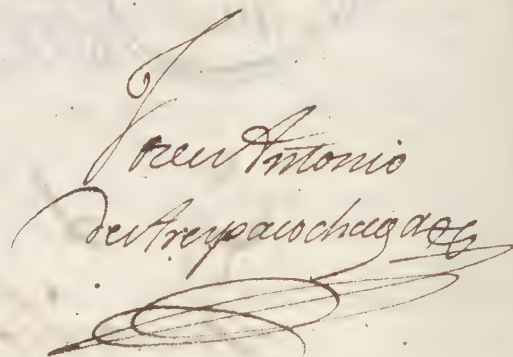 Joseu Antonio
de Areypacochaga